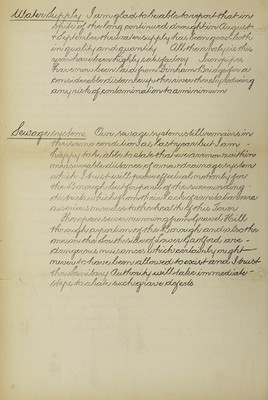 Water Supply I am glad to be able to report that in
spite of the long continued drought in August
& September the water supply has been good both
in quality and quantity All the analysis this
year have been highly satisfactory Iron pipes
have now been laid from Denham Bridge for a
considerable distance up the river thereby reducing
any risk of contamination to a minimum
Sewage system Our sewage system still remains in
the same condition as last year but I am
happy to be able to state that we are now within
measurable distance of a new drainage system
which I trust will prove effectual not only for
the Borough but for parts of the surrounding
districts which from their lack of sanitation are
a serious menace to the health of this Town
The open sewer running from Gravel Hill
through a portion of the Borough and also the
one on the South side of Lower Gatford are
dangerous nuisances which certainly ought
never to have been allowed to exist and I trust
the Sanitary Authority will take immediate
steps to abate such grave defects